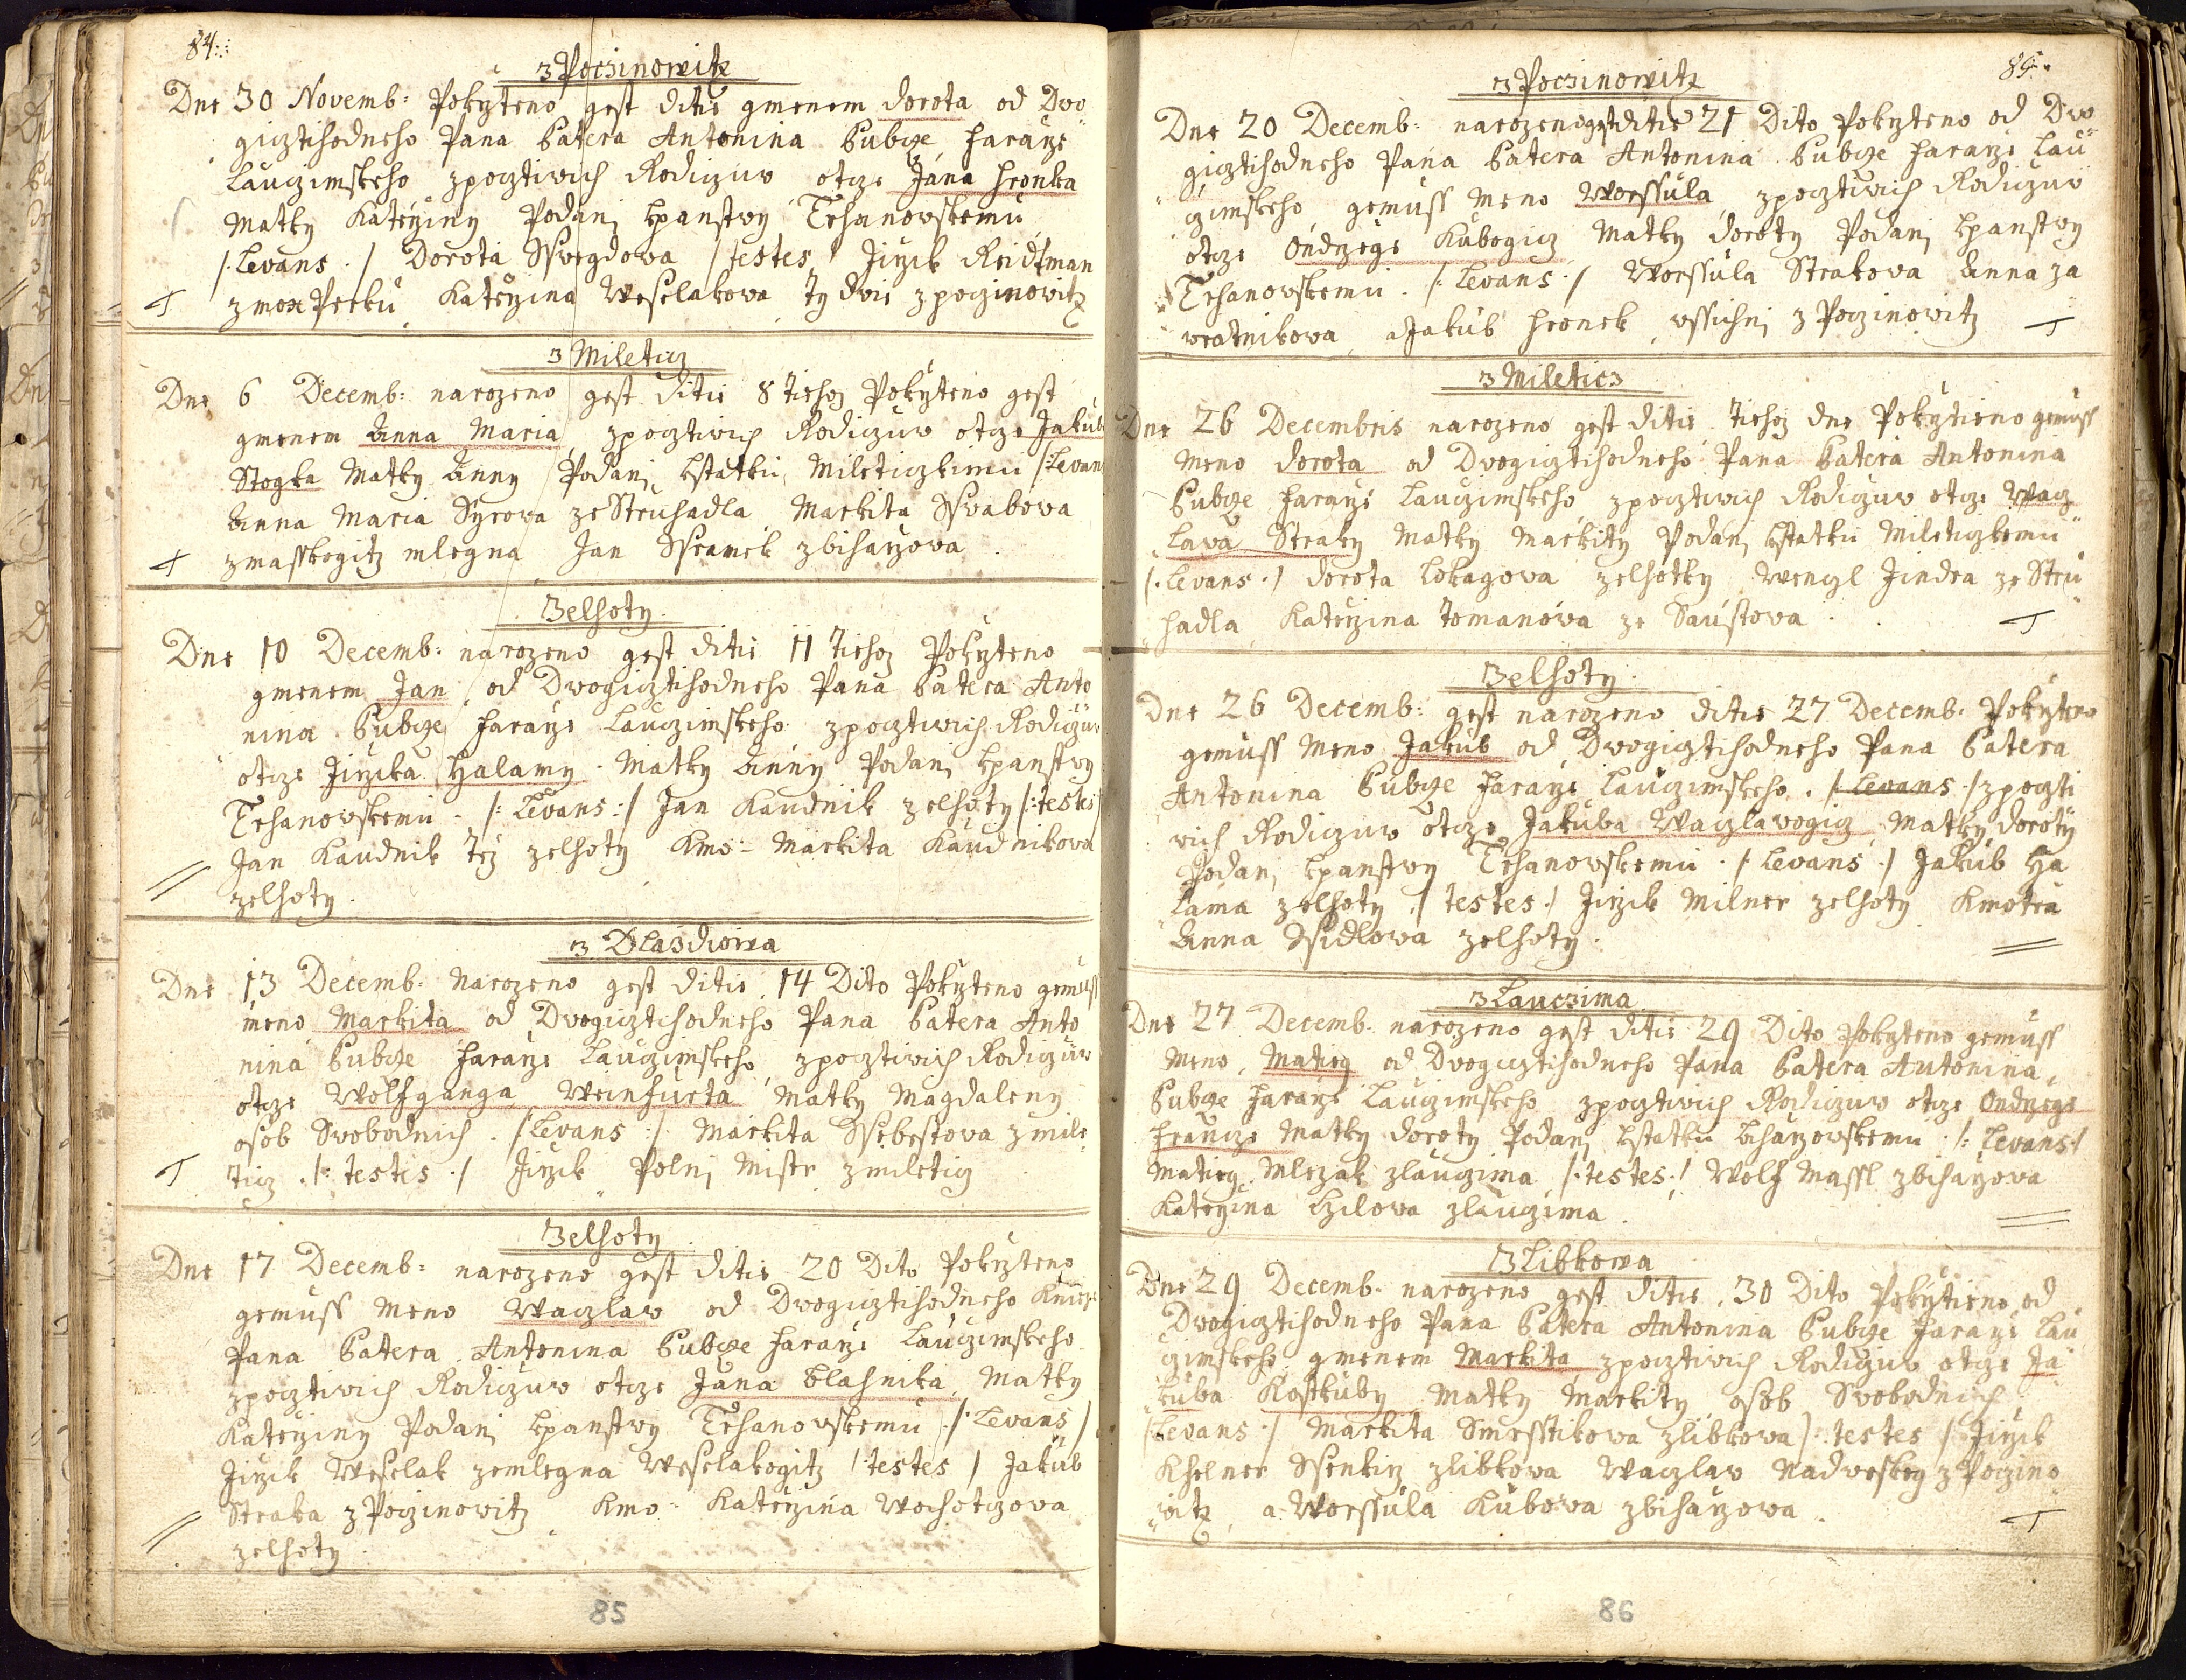 84.
z Poczinowitz
Dne 30 Novemb: Pokrzteno gest ditie gmenem dorota od Dwo
gicztihodneho Pana Patera Antonina Bubcze, fararze
Lauczimskeho zpocztiwich Rodiczuw otcze Jána hronka
Matky Katerziny Podani kpanstwy Trhanowskemu
/:Levans:/ Dorota Sswegdowa /testes/ Jirzik Reidtman
Katerzina Weselakowa ty dwie z poczinowitz
z Mileticz
Dne 6 Decemb: narozeno gest ditie 8 tiehoz Pokrzteno gest
gmenem Anna Maria zpocztiwich Rodiczuw otcze Jakub
Stogka Matky Anny Podani kstatku Mileticzkimu /:Levans
Anna Maria Syrova ze Struhadla Markita Sswabowa
zmasskogitz mlegna Jan Ssramek zbiharzowa.
Zelhoty.
Dne 10 Decemb: narozeno gest ditie 11 tiehoz Pokrzteno
gmenem Jan od Dwogicztihodneho Pana Patera Anto
nina Bubcze fararze Lauczimskeho zpocztiwich Rodiczuw
otcze Jirzika Halamy Matky Anny Podani kpanstwy
Trhanowskemu. /:Levans:/ Jan Kaudnik zelhoty /:testes/
Jan Kaudnik téz zelhoty Kmo: Markita Kaudnikowa
zelhoty.
z Dlazdiowa
Dne 13 Decemb: Narozeno gest ditie 14 Dito Pokrzteno gemuss
meno Markita od Dwogicztihodneho Pana Patera Anto
nina Bubcze fararze Lauczimskeho, zpocztiwich Rodiczuw
otcze Wolfganga Weinfurta Matky Magdaleny
osob Swobodnich. /:Levans:/ Markita Ssebestowa zmile
ticz. /:testes:/ Jirzik Polni Mistr zmileticz
Zelhoty.
Dne 17 Decemb: narozeno gest ditie 20 Dito Pokrzteno
gemuss meno Waczlaw od Dwogicztihodneho Knieze
Pana Patera Antonina Bubcze fararze Lauczimskeho
zpocztiwich Rodiczuw otcze Jána blahnika, Matky
Katerziny Podani kpanstwy Trhanowskemu /:Levans/
Jirzik Weselak zemlegna Weselakogitz /:testes/ Jakub
Straka z Poczinowitz Kmo: Katerzina Wochotczowa
zelhoty.
85
85.
z Poczinowitz
Dne 20 Decemb: narozeno gest ditie 21 Dito Pokrzteno od Dwo
gicztihodneho Pana Patera Antonina Bubcze fararze Lau
czimskeho gemuss meno Worssula, zpocztiwich Rodiczuw
otcze Ondrzege Kubogicz Matky doroty Podani kpanstwy
Trhanowskemu. /:Levans:/ Worssula Strakowa Anna za
wratnikowa, a Jakub hronek, wssichni z Poczinowitz
z Mileticz
Dne 26 Decembris narozeno gest ditie tiehoz dne Pokrztieno gemuss
Meno dorota od Dwogicztihodneho Pana Patera Antonina
Bubcze fararze Lauczimskeho zpocztiwich Rodiczuw otcze Wacz
lawa Straky Matky Markity Podani kstatku Mileticzkemu
/:Levans:/ dorota Lokagowa zelhotky Wenczl Jindra ze Stru
hadla Katerzina tomanowa ze Saustowa.
Zelhoty.
Dne 26 Decemb: gest narozeno ditie 27 Decemb: Pokrzteno
gemuss Meno Jakub od Dwogicztihodneho Pana Patera
Antonina Bubcze fararze Lauczimskeho. /:Levans:/ zpoczti
wich Rodiczuw otcze Jakuba Waczlawogicz Matky doroty
Podani kpanstwy Trhanowskemu. /:Levans:/ Jakub Ha
lama zelhoty /:testes:/ Jirzik Milner zelhoty Kmotra
Anna Ssidlowa zelhoty.
z Lauczima
Dne 27 Decemb: narozeno gest ditie 29 Dito Pokrzteno gemuss
Meno, Matieg od Dwogicztihodneho Pana Patera Antonina,
Bubcze fararze Lauczimskeho zpocztiwich Rodiczuw otcze Ondrzege
francze Matky doroty Podani kstatku biharzowskemu. /:Levans:/
Matieg Mlezak zlauczima /:testes:/ Wolf Massl zbiharzowa
Katerzina zlauczima.
Z Libkowa
Dne 29 Decemb: narozeno gest ditie. 30 Dito Pokrztieno od
Dwogicztihodneho Pana Patera Antonina Bubcze fararze Lau
czimskeho gmenem Markita zpocztiwich Rodiczuw otcze Ja
kuba Kostkuby Matky Markity osob Swobodnich
/:Levans:/ Markita Smrsstikowa zlibkowa /:testes:/ Jirzik
Khelner Ssenkirz zlibkowa Waczlaw Nadwesky z Poczino
witz, a Worssula Kubowa zbiharzowa.
86